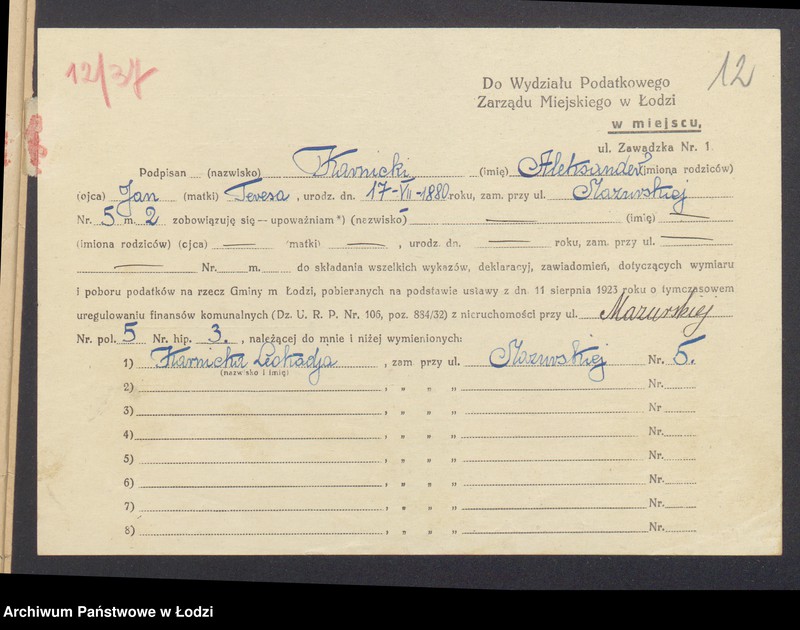 12/37
12
Do Wydziału Podatkowego
Zarządu Miejskiego w Łodzi
w miejscu,
ul. Zawadzka Nr. 1
Podpisan (nazwisko) Karnicki (imię) Aleksander (imiona rodziców)
(ojca) Jan (matki) Teresa, urodz. dn. 17-VII-1880 roku, zam. przy ul. Mazurskiej
Nr. 5 m. 2 zobowiązuję się — upoważniam *) (nazwisko) — (imię) —
(imiona rodziców) (ojca) — matki) — , urodz. dn. — roku, zam. przy ul. —
— Nr. m. do składania wszelkich wykazów, deklaracyj, zawiadomień, dotyczących wymiaru
i poboru podatków na rzecz Gminy m Łodzi, pobieranych na podstawie ustawy z dn. 11 sierpnia 1923 roku o tymczasowem
uregulowaniu finansów komunalnych (Dz. U. R. P. Nr. 106, poz. 884/32) z nieruchomości przy ul. Mazurskiej
Nr. pol. 5 Nr. hip. 3. , należącej do mnie i niżej wymienionych:
1) Karnicka Leokadja , zam. przy ul. Mazurskiej Nr. 5.
(nazwisko i imię)
2) , „ „ „ Nr.
3) , „ „ „ Nr
4) , „ „ „ Nr.
5) , „ „ „ Nr.
6) , „ „ „ Nr.
7) , „ „ „ Nr.
8) , „ „ „ Nr.
Archiwum Państwowe w Łodzi